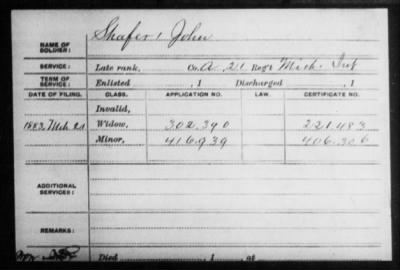 Shafer, John
NAME OF SOLDIER:
SERVICE: Late rank, Co. A, 21 Reg't Mich. Inf
TERM OF SERVICE: Enlisted , 1 Discharged , 1
DATE OF FILING. CLASS. APPLICATION NO. LAW. CERTIFICATE NO.
Invalid,
1883, Mch 21 Widow, 302.390 221.483
Minor, 416.939 406.306
ADDITIONAL SERVICES:
REMARKS:
Died , 1 , at